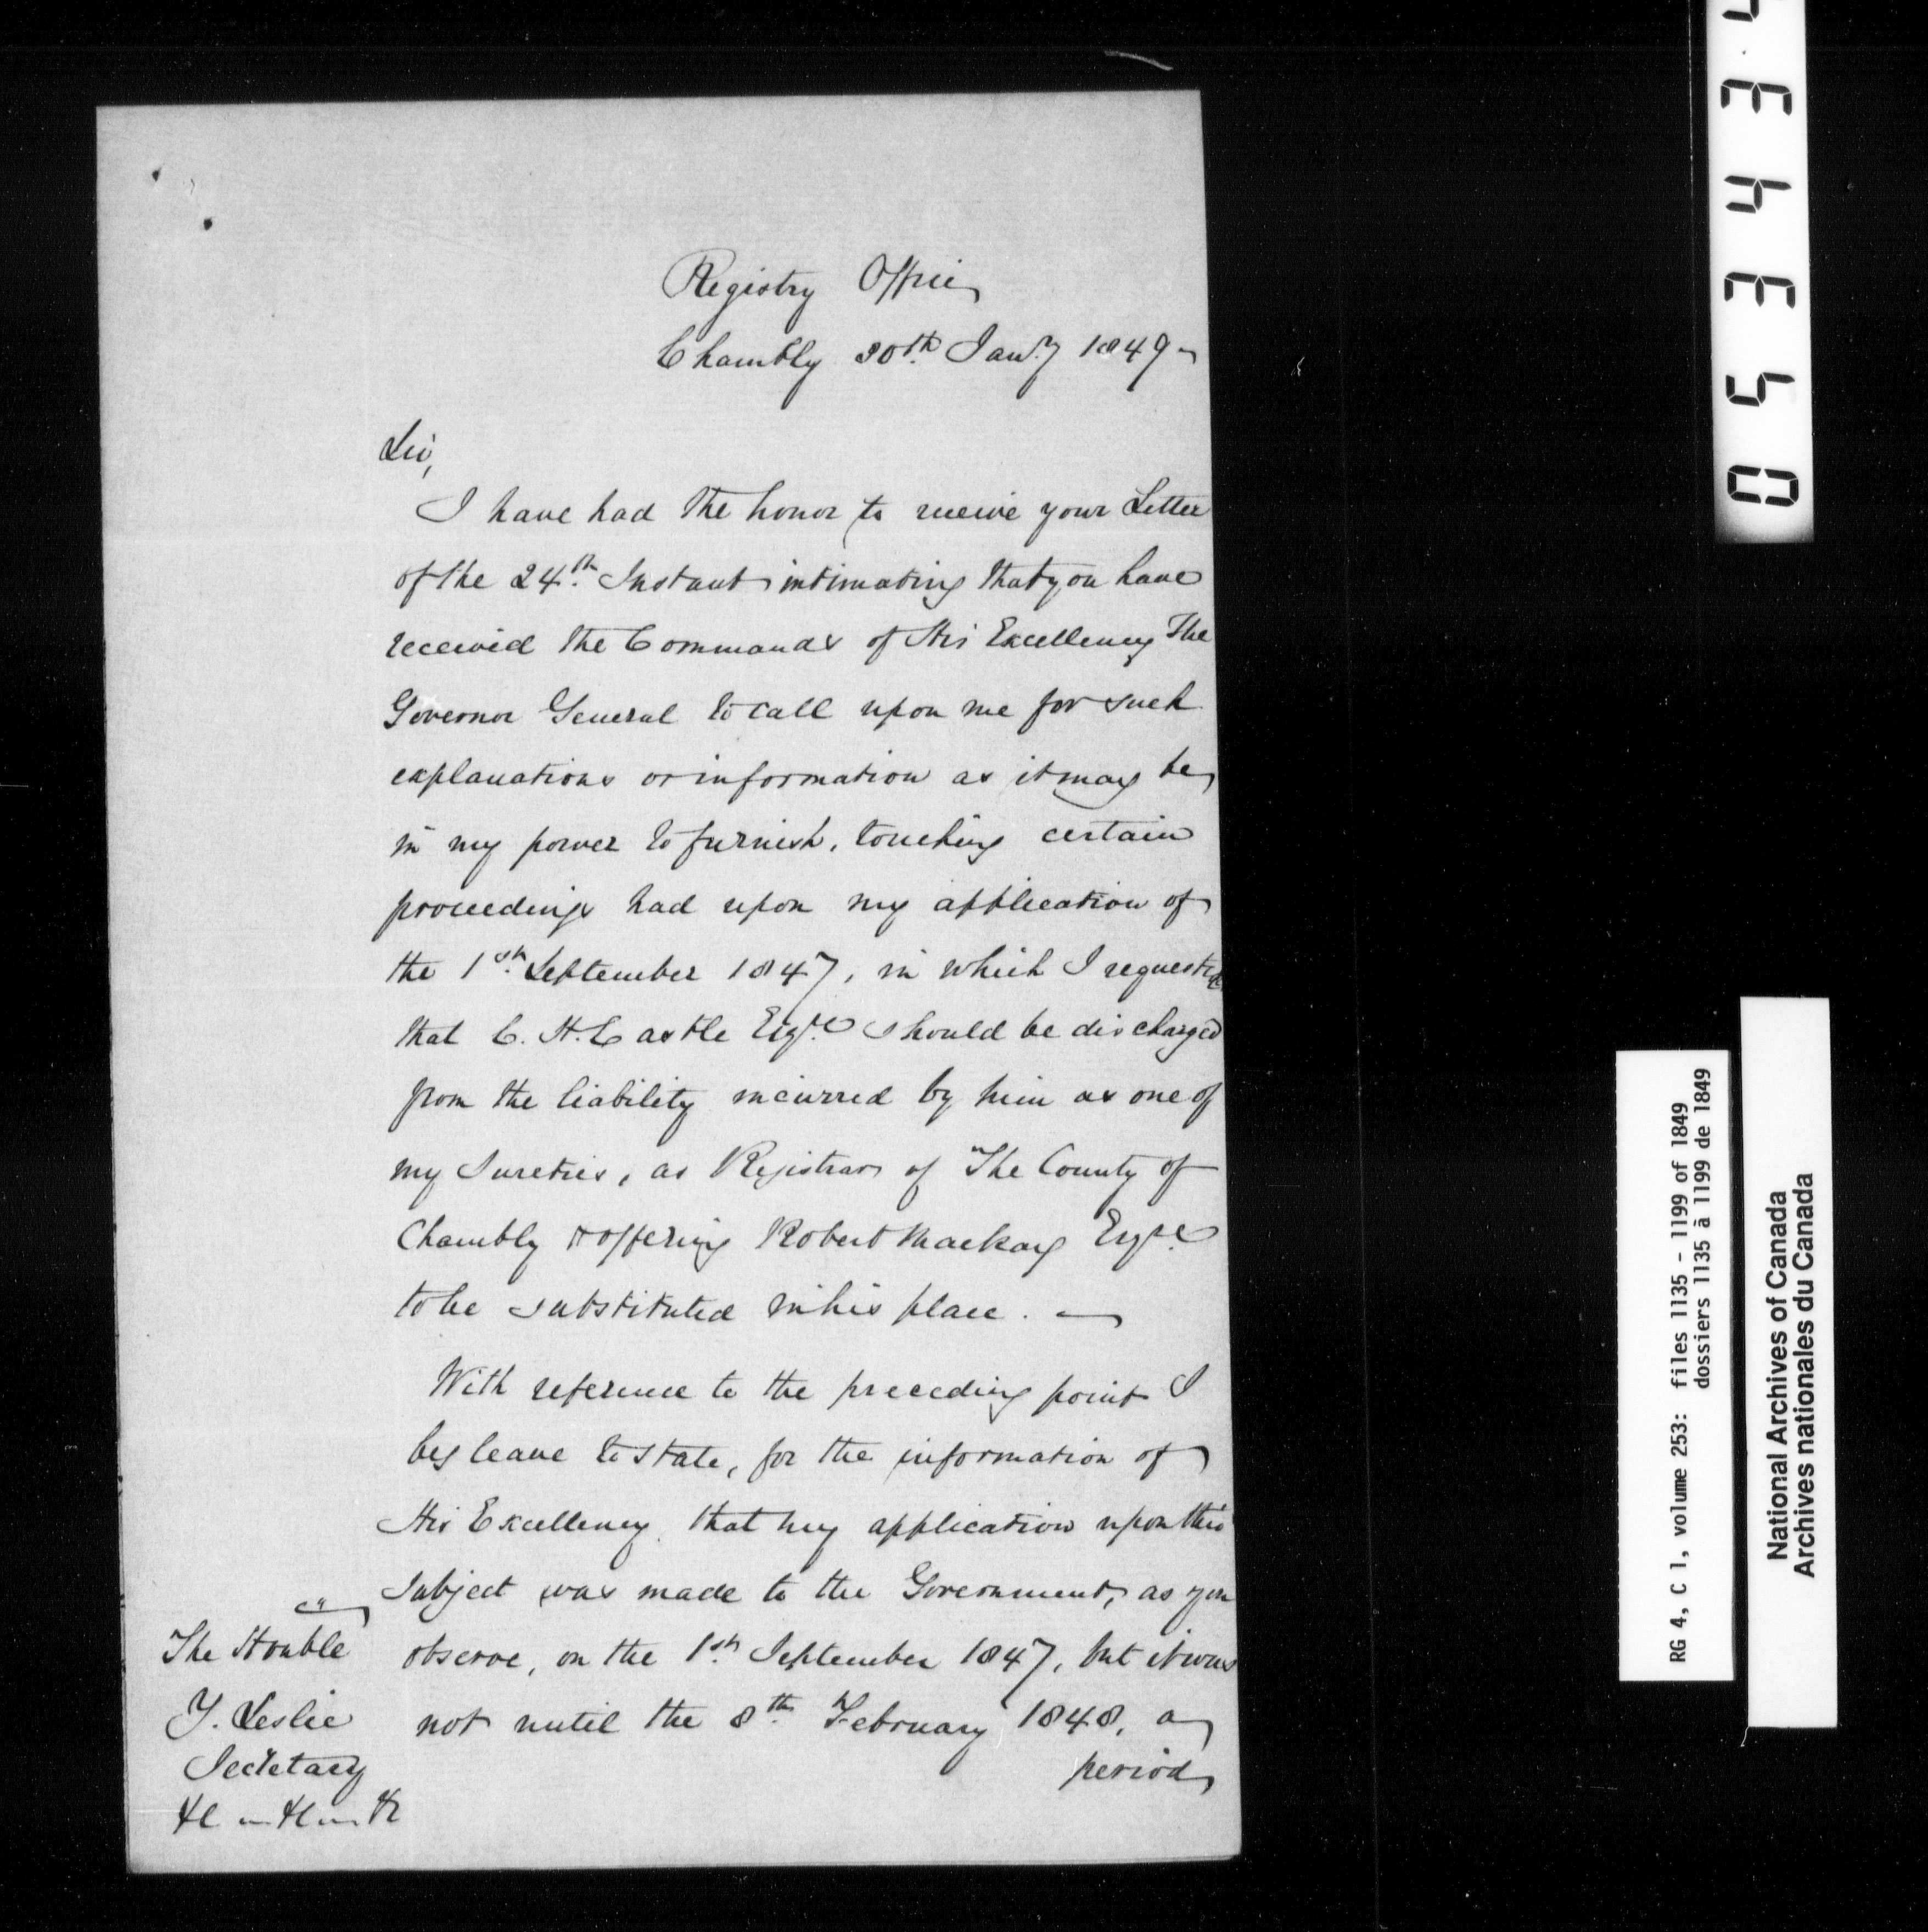 Registry Office
Chambly 30th Jany 1849
Sir,
I have had the honor to receive your Letter
of the 24th Instant intimating that you have
received the Commands of His Excellency The
Governor General to call upon me for such
explanations or information as it may be
in my power to furnish, touching certain
proceedings had upon my application of
the 1st September 1847, in which I requested
that C. H. Castle Esqre should be discharged
from the liability incurred by him as one of
my Sureties, as Registrar of The County of
Chambly & offering Robert Mackay Esqre
to be substituted in his place.
With reference to the preceding point I
beg leave to state, for the information of
His Excellency that my application upon this
subject was made to the Government, as you
observe, on the 1st September 1847, but it was
not until the 8th February 1848, a
period
The Honble
J. Leslie
Secretary
&c &c &c
05344344
RG 4, C 1, volume 253: files 1135 - 1199 of 1849
dossiers 1135 à 1199 de 1849
National Archives of Canada
Archives nationales du Canada